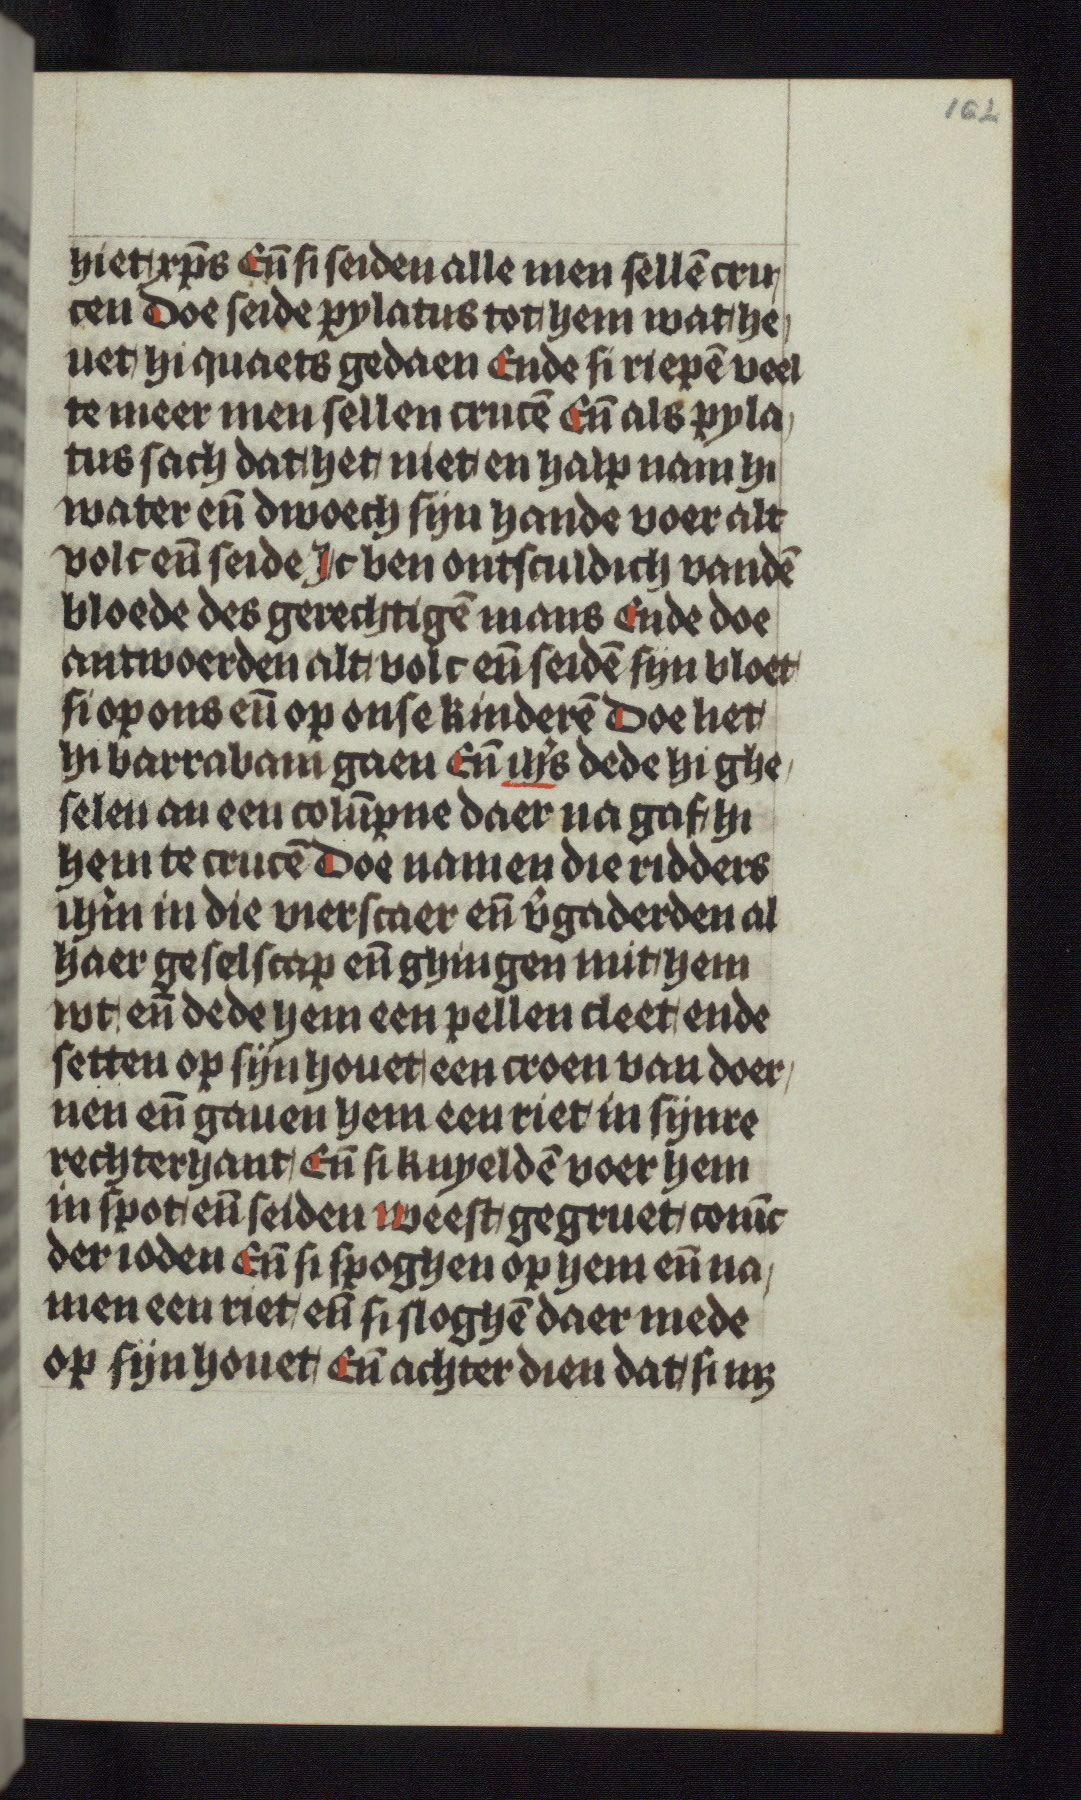 162
hiet xp̄s En̄ si seiden alle men sellē cru
cen Doe seide pylatus tot hem wat he
uet hi quaets gedaen Ende si riepē veel
te meer men sellen crucē En̄ als pyla
tus sach dat het niet en halp nam hi
water en̄ dwoech sijn hande voer alt
volc en̄ seide Ic ben ontsculdich vandē
bloede des gerechtigē mans Ende doe
antwoerden alt volc en̄ seidē sijn bloet
si op ons en̄ op onse kinderē Doe liet
hi barrabam gaen En̄ ihūs dede hi ghe
selen an een colūpne daer na gaf hi
hem te crucē Doe namen die ridders
ihm̄ in die vierscaer en̄ v̄gaderden al
haer geselscap en̄ ghingen mit hem
wt en̄ dede hem een pellen cleet ende
setten op sijn houet een croen van doer
nen en̄ gauen hem een riet in sijnre
rechterhant En̄ si knyeldē voer hem
in spot en̄ seiden weest gegruet coninc
der ioden En̄ si spoghen op hem en̄ na
men een riet en̄ si sloghē daer mede
op sijn houet En̄ achter dien dat si